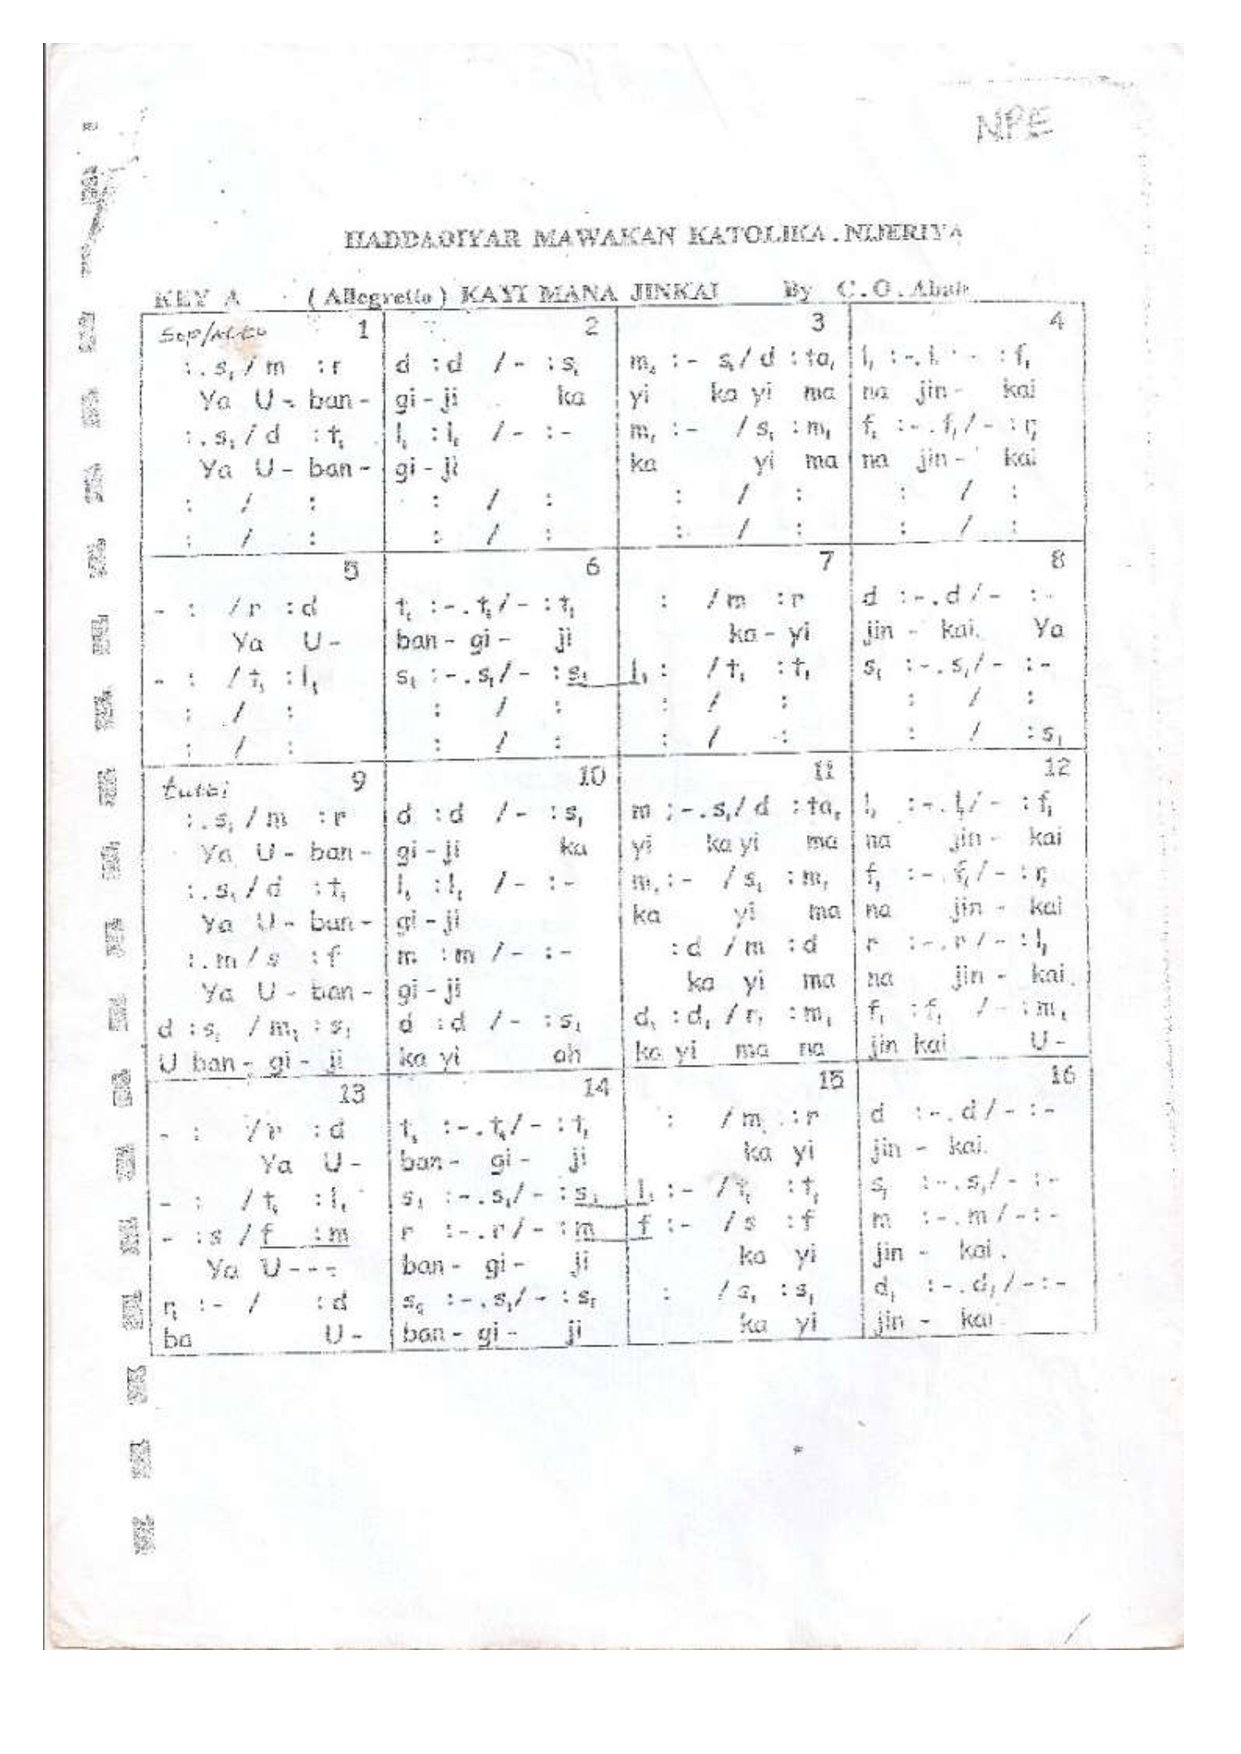 NPE
HADDAGIYAR MAWAKAN KATOLIKA.NIJERIYA
KEY A (Allegretto) KAYI MANA JINKAI By C.O.
Sop/Alto 1 2 3 4
:.s₁/m :r d :d /- :s₁ m₁ :- s₁/d :ta₁ l₁ :-.l₁ :- :f₁
Ya U- ban- gi-ji ka yi ka yi ma na jin- kai
:.s₁/d :t₁ l₁ :l₁ /- :- m₁ :- /s₁ :m₁ f₁ :-.f₁/- :r₁
Ya U- ban- gi-ji ka yi ma na jin- kai
: / : : / : : / : : / :
: / : : / : : / : : / :
5 6 7 8
- : /r :d t₁ :-.t₁/- :t₁ : /m :r d :-.d/- :-
Ya U- ban-gi- ji ka-yi jin- kai. Ya
- : /t₁ :l₁ s₁ :-.s₁/- :s₁ l₁ : /t₁ :t₁ s₁ :-.s₁/- :-
: / : : / : : / : : / :
: / : : / : : / : : / :s₁
tutti 9 10 11 12
:.s₁/m :r d :d /- :s₁ m :-.s₁/d :ta₁ l₁ :-.l₁/- :f₁
Ya U- ban- gi-ji ka yi ka yi ma na jin- kai
:.s₁/d :t₁ l₁ :l₁ /- :- m₁ :- /s₁ :m₁ f₁ :-.f₁/- :r₁
Ya U- ban- gi-ji ka yi ma na jin- kai
:.m/s :f m :m /- :- :d /m :d r :-.r/- :l₁
Ya U- ban- gi-ji ka yi ma na jin- kai.
d :s₁ /m₁ :s₁ d :d /- :s₁ d₁ :d₁ /r₁ :m₁ f₁ :f₁ /- :m₁
U ban- gi- ji ka yi ah ka yi ma na jin kai U-
13 14 15 16
- : /r :d t₁ :-.t₁/- :t₁ : /m :r d :-.d/- :-
Ya U- ban- gi- ji ka yi jin- kai.
- : /t₁ :l₁ s₁ :-.s₁/- :s₁ l₁ :- /t₁ :t₁ s₁ :-.s₁/- :-
- :s /f :m r :-.r/- :m f :- /s :f m :-.m/- :-
Ya U--- ban- gi- ji ka yi jin- kai.
r₁ :- / :d s₁ :-.s₁/- :s₁ : /s₁ :s₁ d₁ :-.d₁/- :-
ba U- ban- gi- ji ka yi jin- kai